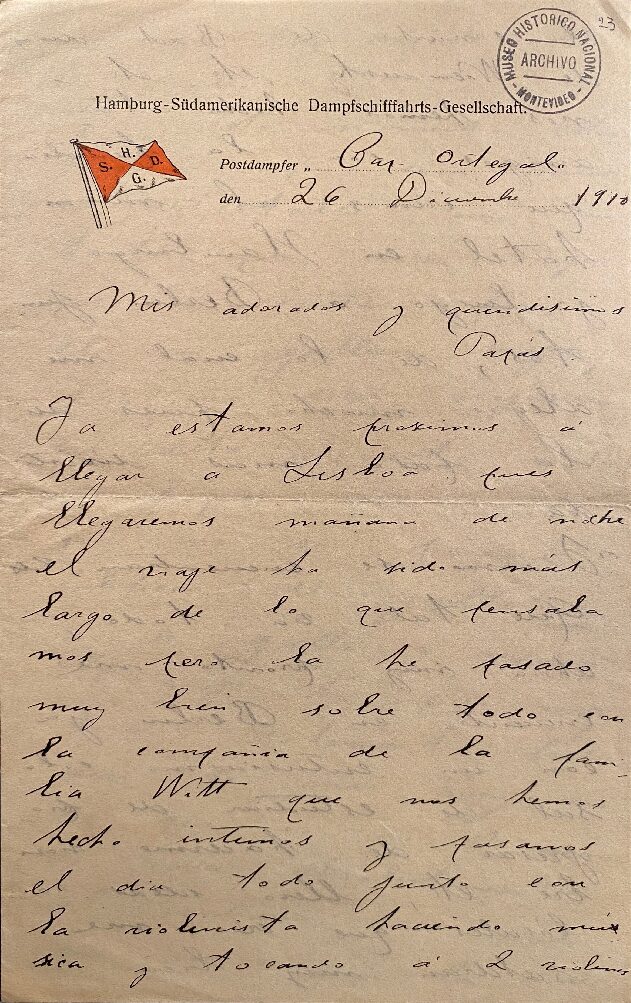 23
MUSEO HISTORICO NACIONAL
ARCHIVO
- MONTEVIDEO -
Hamburg-Südamerikanische Dampfschifffahrts-Gesellschaft.
H.
S. D.
G.
Postdampfer „ Cap Ortegal "
den 26 Diciembre 1910
Mis adorados y queridisimos
Papás
Ya estamos proximos á
llegar a Lisboa pues
llegaremos mañana de noche
el viaje ha sido más
largo de lo que pensaba
mos pero la he pasado
muy bien sobre todo con
la compañia de la fami-
lia Witt que nos hemos
hecho intimos y pasamos
el dia todo junto con
la violinista haciendo mú
sica y tocando á 2 violines